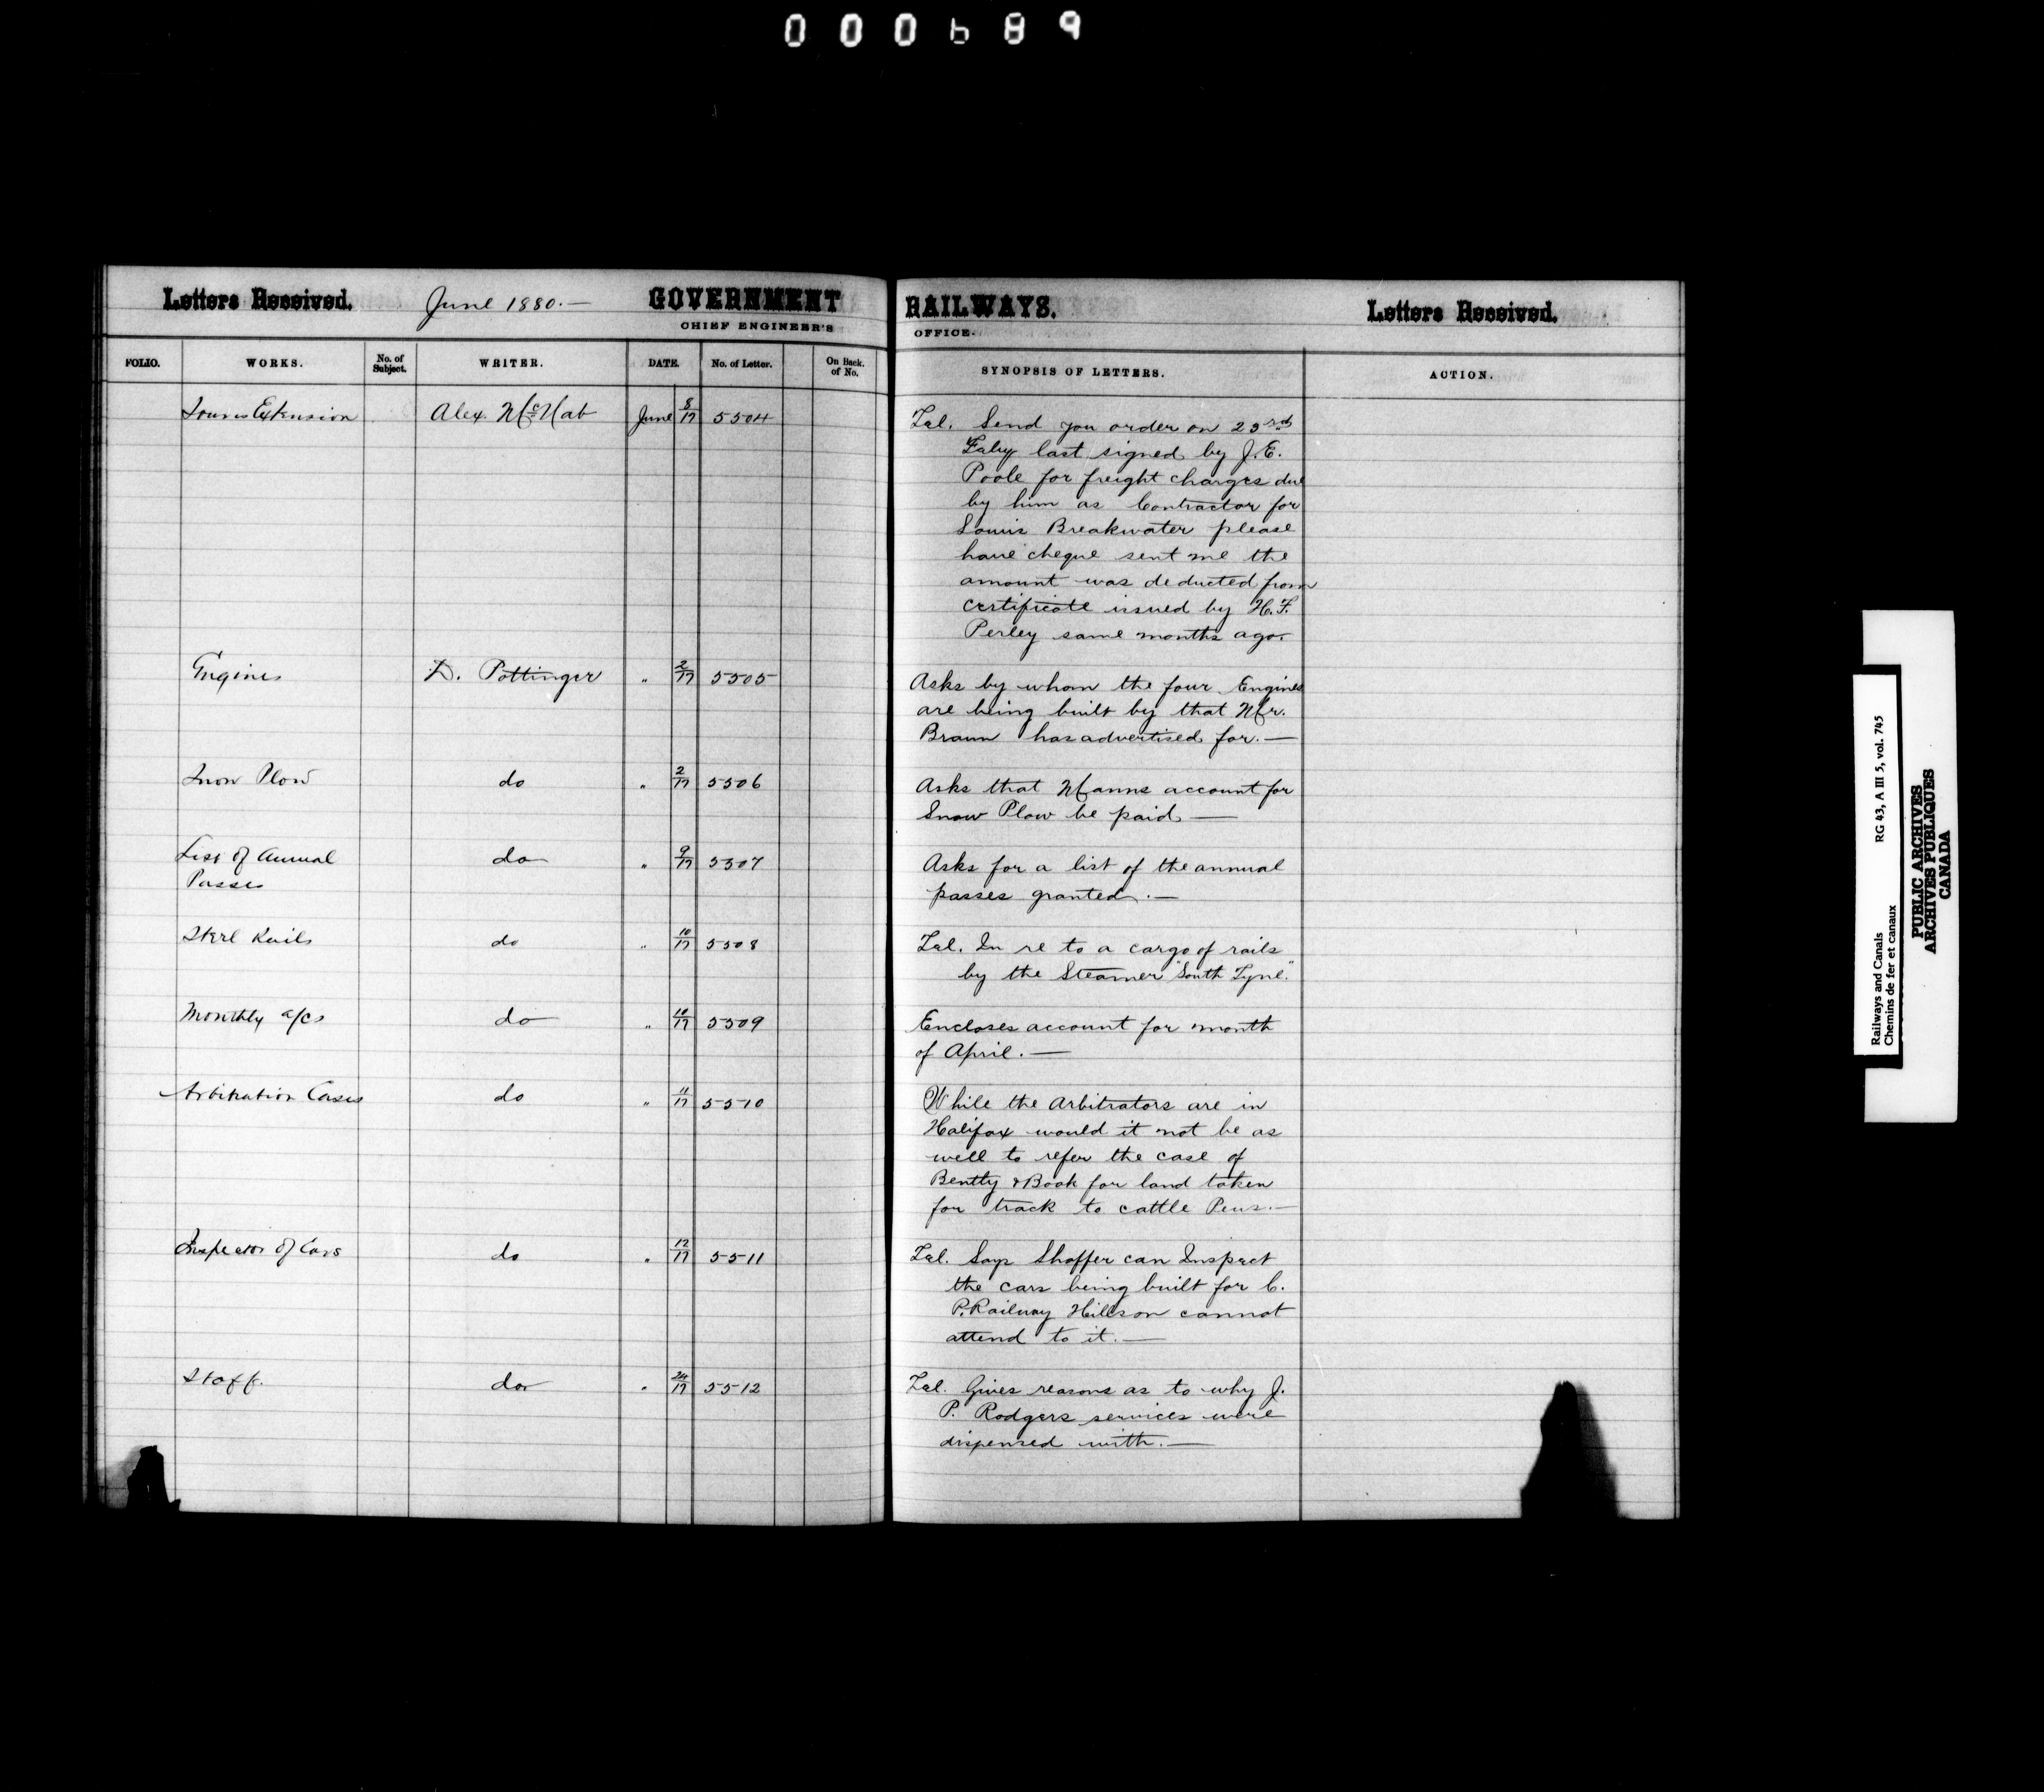 000689
Letters Received. June 1880.— GOVERNMENT RAILWAYS. Letters Received.
CHIEF ENGINEER'S OFFICE.
FOLIO. WORKS. No. of Subject. WRITER. DATE. No. of Letter. On Back. of No. SYNOPSIS OF LETTERS. ACTION.
Souris Extension Alex. McNab June 8/17 5504 Tel. Send you order on 23rd
Feby last signed by J.E.
Poole for freight charges due
by him as Contractor for
Souris Breakwater please
have cheque sent me the
amount was deducted from
certificate issued by H.F.
Perley some months ago.
Engines D. Pottinger " 2/17 5505 Asks by whom the four Engines
are being built by that Mr.
Braun has advertised for.—
Snow Plow do " 2/17 5506 Asks that Manns account for
Snow Plow be paid —
List of Annual do " 9/17 5507 Asks for a list of the annual
Passes passes granted.—
Steel Rails do " 10/17 5508 Tel. In re to a cargo of rails
by the Steamer "South Tyne."
Monthly a/cs do " 10/17 5509 Encloses account for month
of April.—
Arbitration Cases do " 11/17 5510 While the Arbitrators are in
Halifax would it not be as
well to refer the case of
Bentty & Book for land taken
for track to cattle Pens.—
Inspector of Cars do " 12/17 5511 Tel. Says Shaffer can Inspect
the cars being built for C.
P. Railway Hillson cannot
attend to it.—
Staff. do " 24/17 5512 Tel. Gives reasons as to why J.
P. Rodgers services were
dispensed with.—
Railways and Canals RG 43, A III 5, vol. 745
Chemins de fer et canaux
PUBLIC ARCHIVES
ARCHIVES PUBLIQUES
CANADA